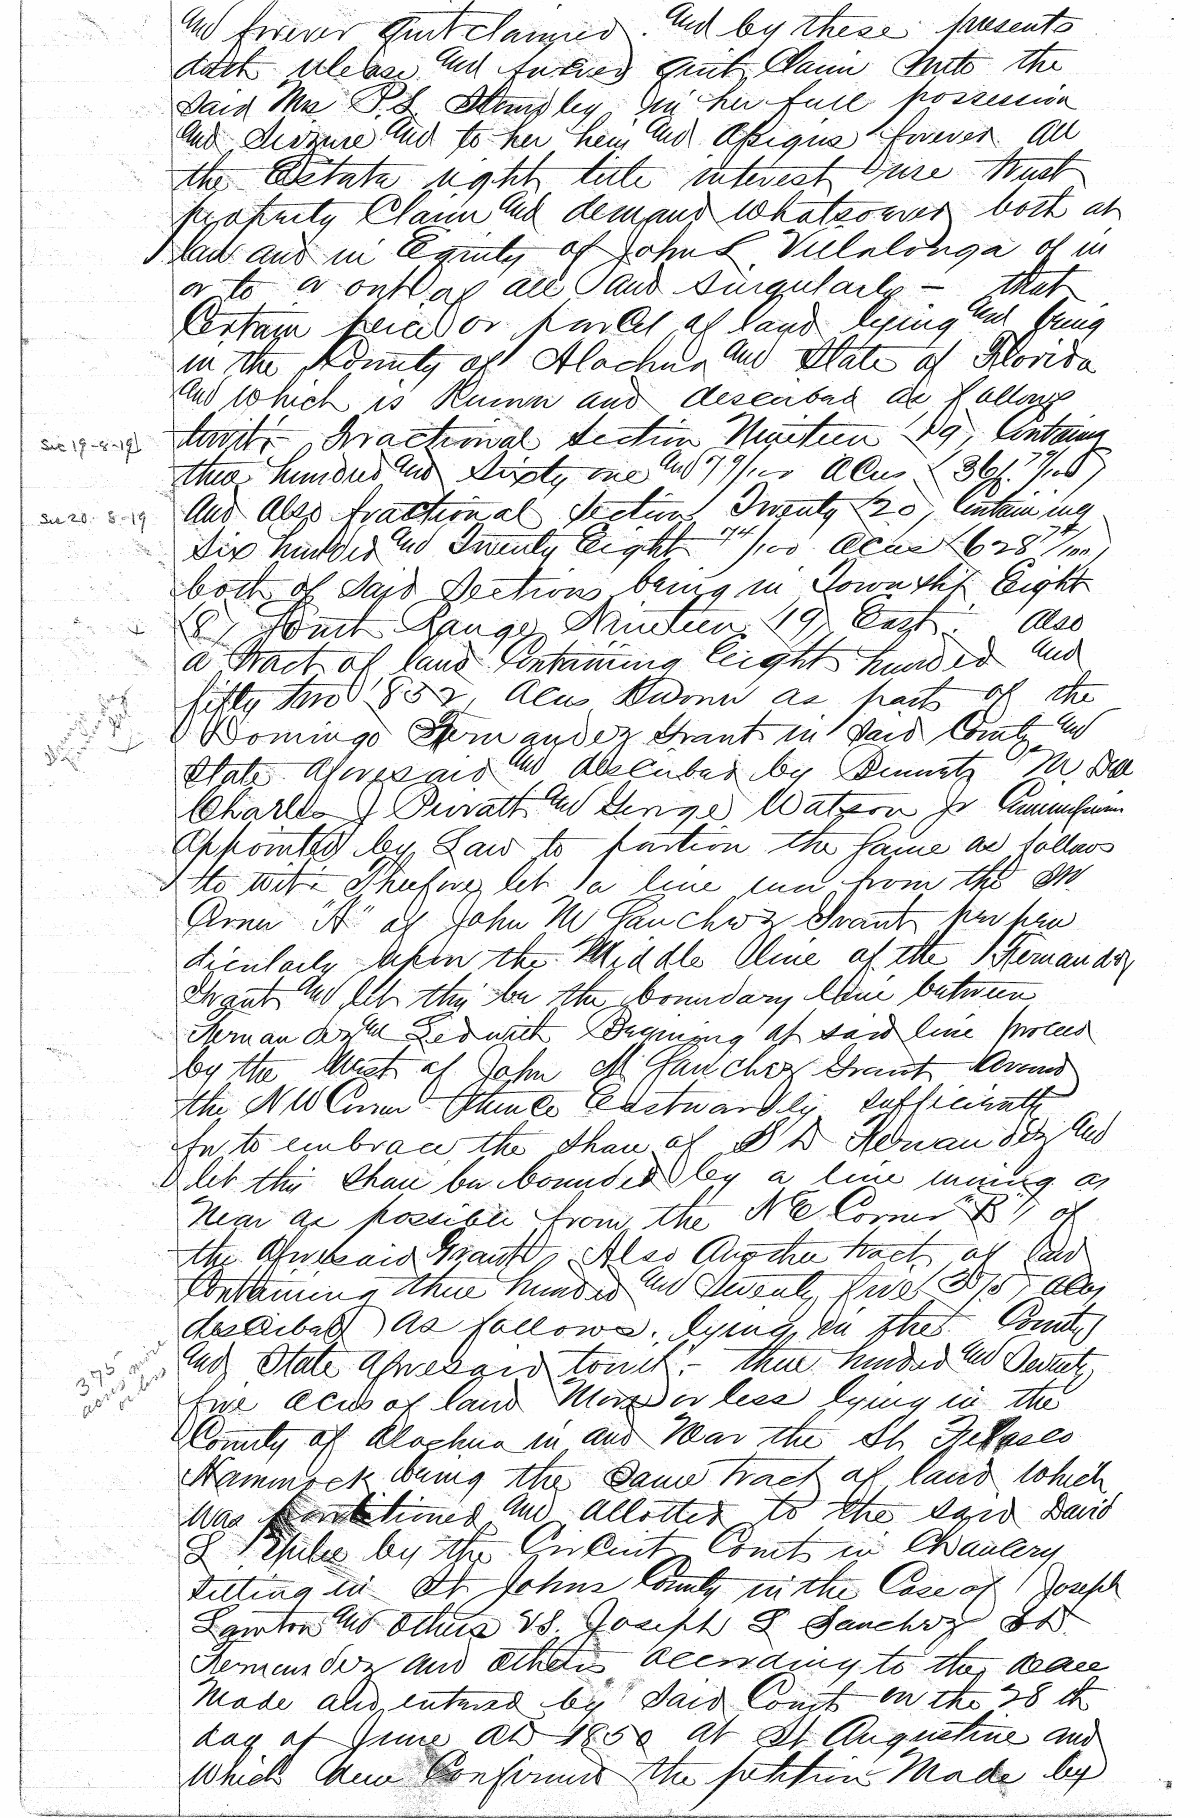 and forever quitclaimed. And by these presents
doth release and forever quit Claim Unto the
Said Mrs P.L. in her full possession
and Seizure and to her heirs and Assigns forever All
the Estate right title interest use trust
property Claim and demand whatsoever both at
law and in Equity of John L Villalonga of in
or to or out of all and singularly - that
Certain piece or parcel of land lying and being
in the County of Alachua and State of Florida
and which is Known and described as follows
Sec 19-8-19
towit: Fractional Section Nineteen (19) Containing
three hundred and Sixty one and 79/100 Acres (361.79/100)
Sec 20-8-19
And Also fractional Section Twenty (20) Containing
Six hundred and Twenty Eight 74/100 Acres (628 74/100)
both of Said Sections being in Township Eight
(8) South Range Nineteen (19) East. Also
a tract of land Containing Eight hundred and
fifty two (852) Acres Known as part of the
Domingo Fernandez Grant in Said County and
State Aforesaid and described by M
Charles J and George Watson Jr
Appointed by Law to partion the Same as follows
to wit: Therefore let a line run from the SW
Corner "A" of John M Sanchez Grant perpen
dicularly upon the Middle line of the Fernandez
Grant and let this be the boundary line between
Fernandez and Ledwith Begining at said line proceed
by the West of John M Sanchez Grant Around
the NW Corner Thence Eastwardly sufficiently
to embrace the Share of S D Fernandez and
let this Share be bounded by a line runing as
Near as possible from the NE Corner "B" of
the Aforesaid Grant. Also Another tract of land
Containing three hundred and Seventy five (375) Acres
described as follows. lying in the County
375 acres more or less
and State Aforesaid towit:- three hundred and Seventy
five acres of land More or less lying in the
County of Alachua in and Near the
Hammock being the Same tract of land which
was partitioned and allotted to the said David
L by the Circuit Court in Chancery
sitting in St Johns County in the Case of Joseph
and others vs. Joseph S Sanchez S D
Fernandez and others according to the decree
Made and entered by Said Court on the 28 th
day of June AD 1850 at St Augustine and
Which decree Confirmed the petition Made by